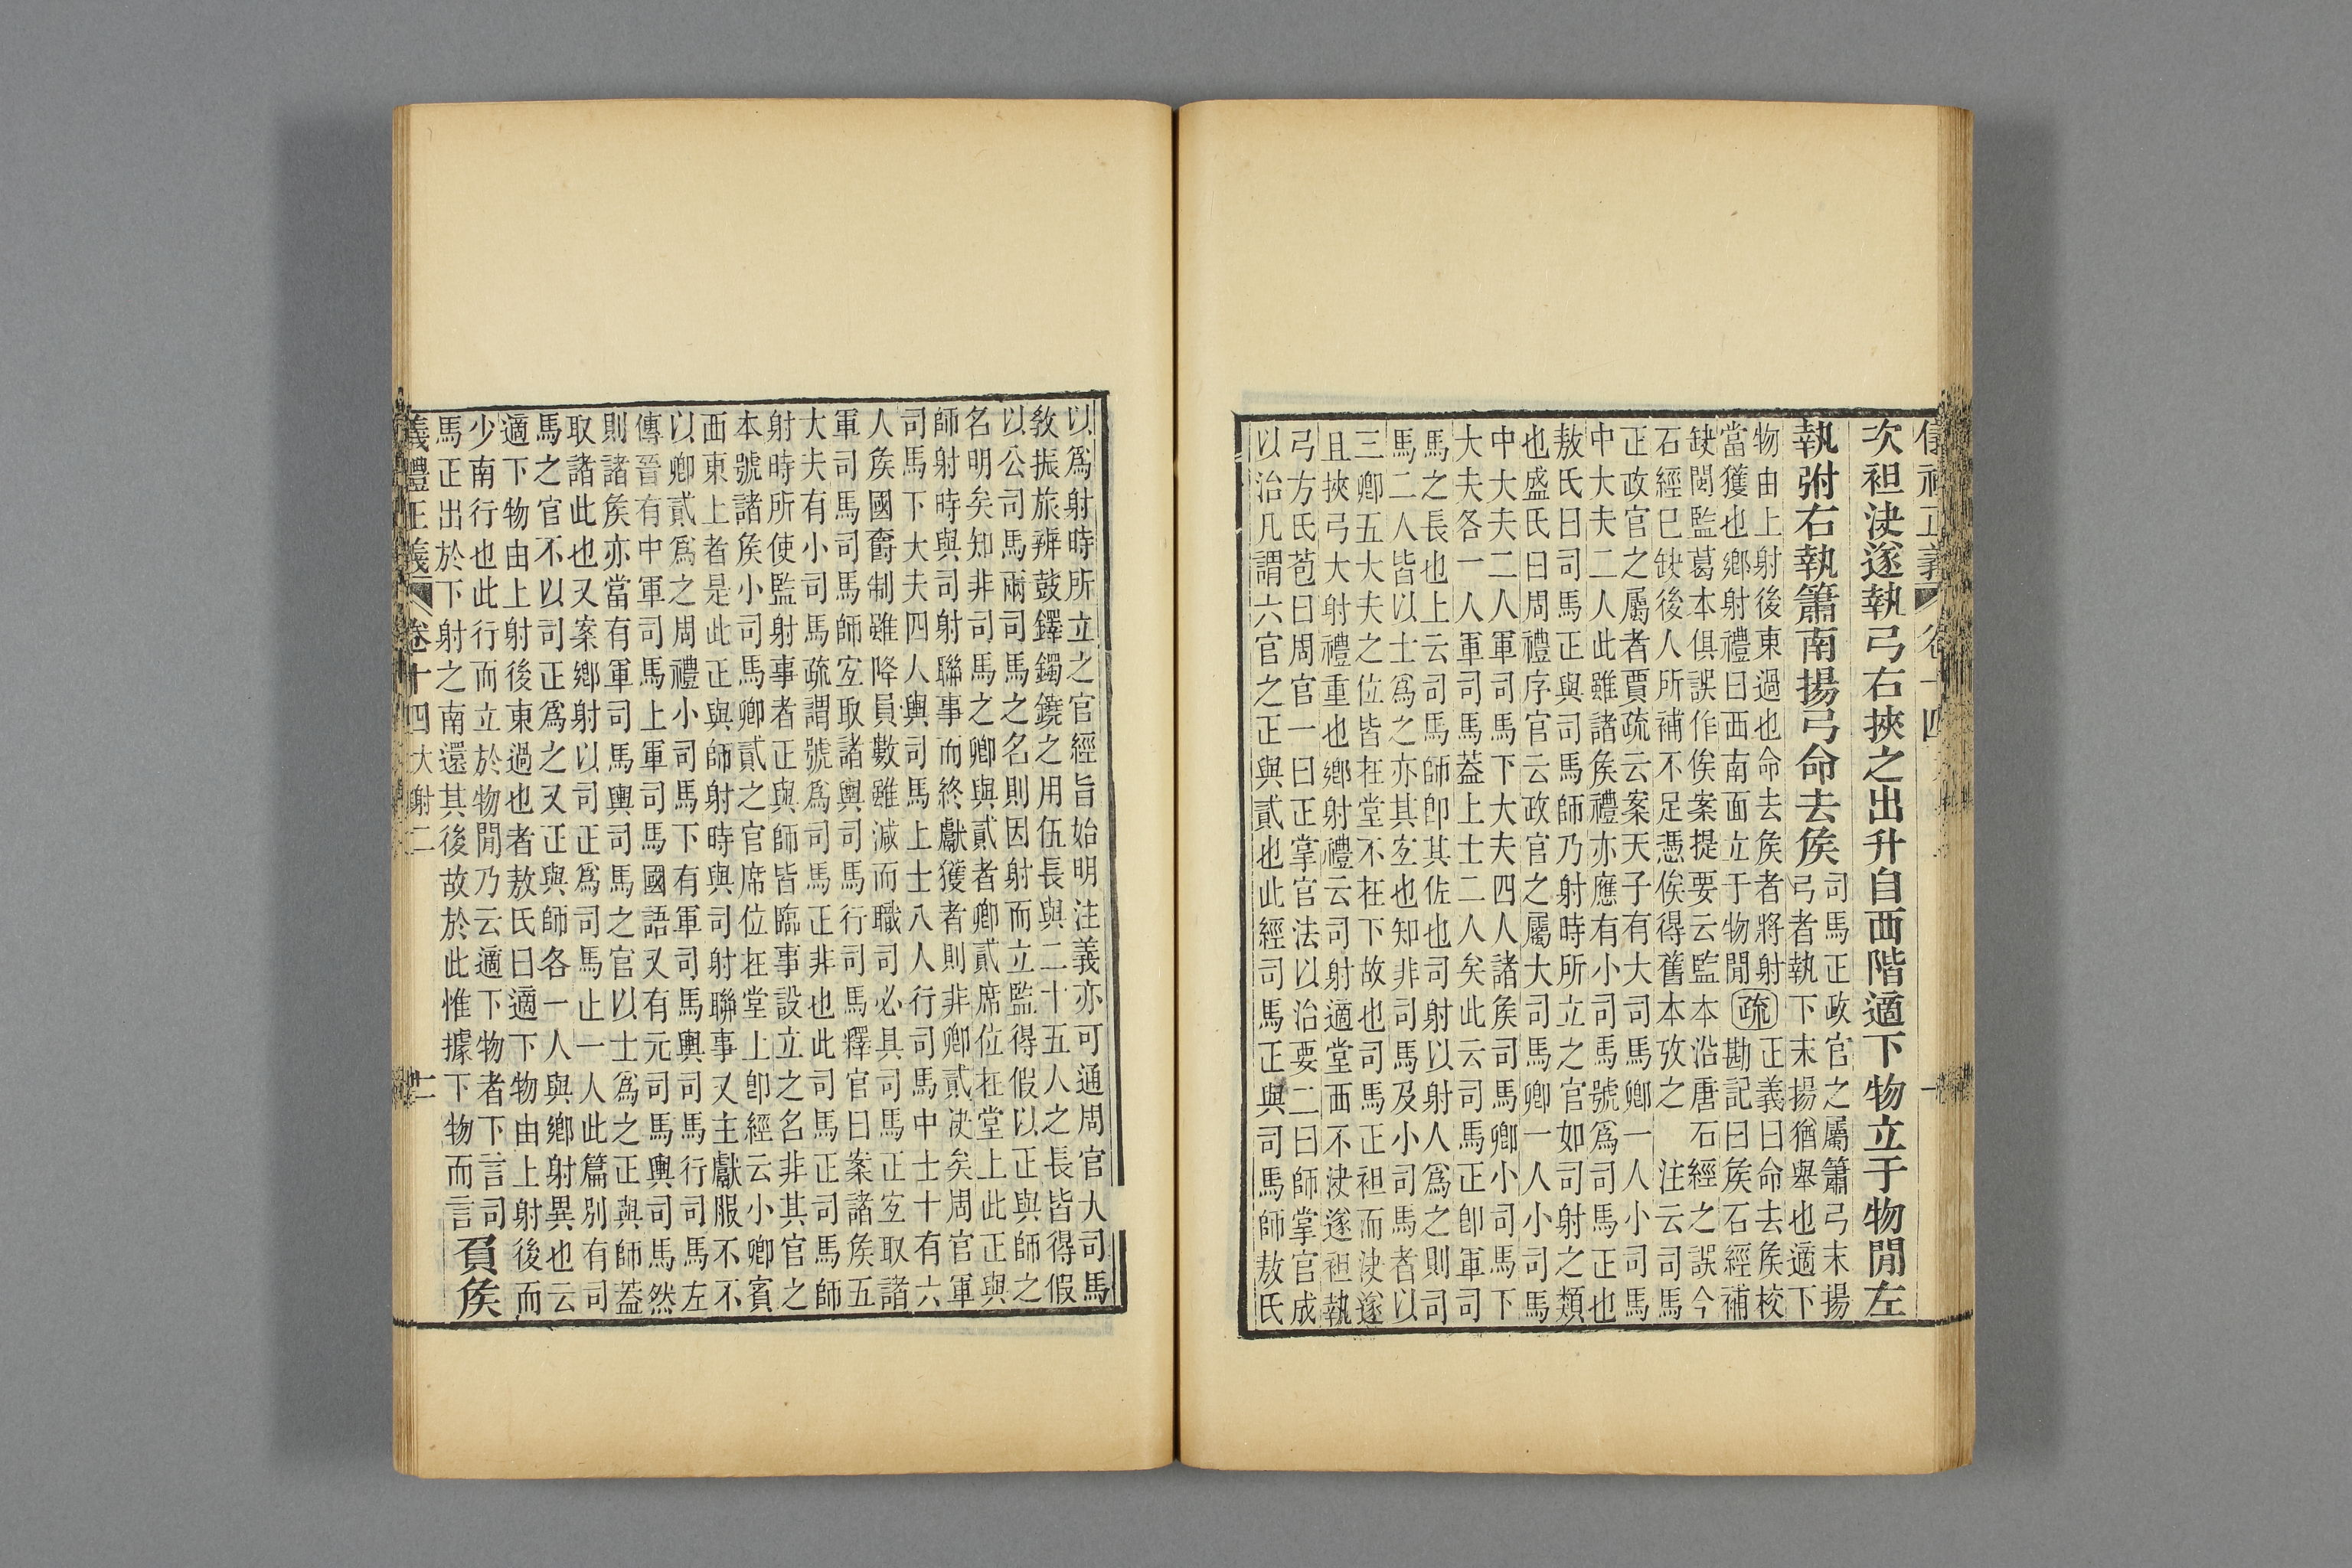 次袒決遂執弓右挾之出升自西階適下物立于物閒左
執弣右執簫南揚弓命去矦司馬正政官之屬簫弓末揚
弓者執下末揚猶舉也適下
物由上射後東過也命去矦者將射
當獲也鄉射禮曰西南面立于物閒
疏正義曰命去矦校
勘記曰矦石經補
缺閩監葛本俱誤作俟案提要云監本沿唐石經之誤今
石經已缺後人所補不足憑俟得舊本攷之 注云司馬
正政官之屬者賈疏云案天子有大司馬卿一人小司馬
中大夫二人此雖諸矦禮亦應有小司馬號爲司馬正也
敖氏曰司馬正與司馬師乃射時所立之官如司射之類
也盛氏曰周禮序官云政官之屬大司馬卿一人小司馬
中大夫二人軍司馬下大夫四人諸矦司馬卿小司馬下
大夫各一人軍司馬葢上士二人矣此云司馬正卽軍司
馬之長也上云司馬師卽其佐也司射以射人爲之則司
馬二人皆以士爲之亦其宐也知非司馬及小司馬者以
三卿五大夫之位皆在堂不在下故也司馬正袒而決遂
且挾弓大射禮重也鄉射禮云司射適堂西不決遂袒執
弓方氏苞曰周官一曰正掌官法以治要二曰師掌官成
以治凡謂六官之正與貳也此經司馬正與司馬師敖氏
以爲射時所立之官經旨始明注義亦可通周官大司馬
教振旅辨鼓鐸鐲鐃之用伍長與二十五人之長皆得假
以公司馬兩司馬之名則因射而立監得假以正與師之
名明矣知非司馬之卿與貳者卿貳席位在堂上此正與
師射時與司射聯事而終獻獲者則非卿貳決矣周官軍
司馬下大夫四人輿司馬上士八人行司馬中士十有六
人矦國爵制雖降員數雖減而職司必具司馬正宐取諸
軍司馬司馬師宐取諸輿司馬行司馬釋官曰案諸矦五
大夫有小司馬疏謂號爲司馬正非也此司馬正司馬師
射時所使監射事者正與師皆臨事設立之名非其官之
本號諸矦小司馬卿貳之官席位在堂上卽經云小卿賓
西東上者是此正與師射時與司射聯事又主獻服不不
以卿貳爲之周禮小司馬下有軍司馬輿司馬行司馬左
傳晉有中軍司馬上軍司馬國語又有元司馬輿司馬然
則諸矦亦當有軍司馬輿司馬之官以士爲之正與師葢
取諸此也又案鄉射以司正爲司馬止一人此篇別有司
馬之官不以司正爲之又正與師各一人與鄉射異也云
適下物由上射後東過也者敖氏曰適下物由上射後而
少南行也此行而立於物閒乃云適下物者下言司
馬正出於下射之南還其後故於此惟據下物而言員矦
義禮正義 卷十四大射二